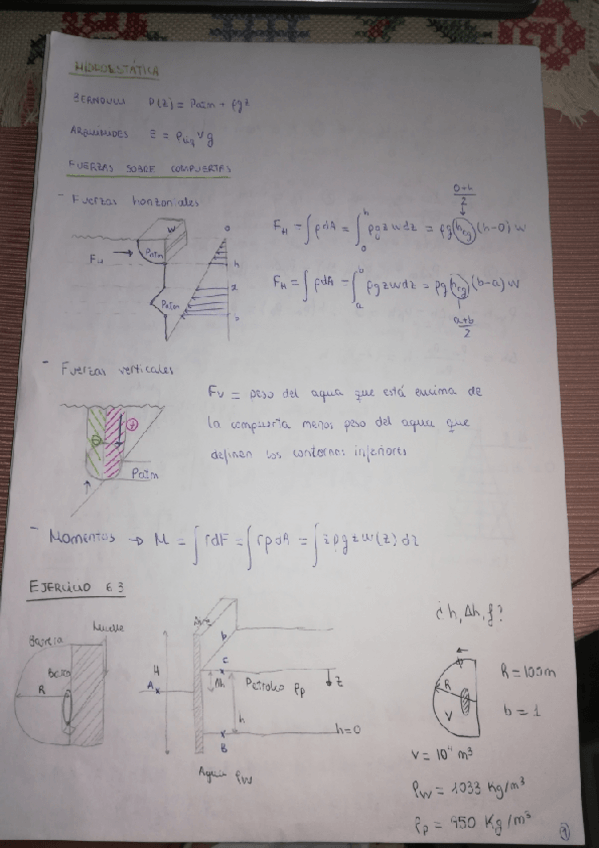 HIDROSTÁTICA
BERNOULLI P(z) = Patm + ρgz
ARQUÍMEDES E = ρliq V g
FUERZAS SOBRE COMPUERTAS
- Fuerzas horizontales
0+h
2
W
0
FH = ∫ρdA = ∫₀ʰ ρgzwdz = ρg(hcg)(h-0)w
Patm
FH
h
a
FH = ∫ρdA = ∫ₐᵇ ρgzwdz = ρg(hcg)(b-a)w
Patm
a+b
2
- Fuerzas verticales
FV = peso del agua que está encima de
la compuerta menos peso del agua que
definen los contornos inferiores
Patm
- Momentos → M = ∫rdF = ∫rpdA = ∫zρgzw(z)dz
EJERCICIO 6.3
¿h, Δh, f?
Barrera
Muelle
Barco
R
H
A
b
C
Δh
Petróleo ρp
z
h
h=0
B
Agua ρW
R
V
R = 100m
b = 1
V = 10⁴ m³
ρW = 1033 Kg/m³
ρp = 950 Kg/m³
1